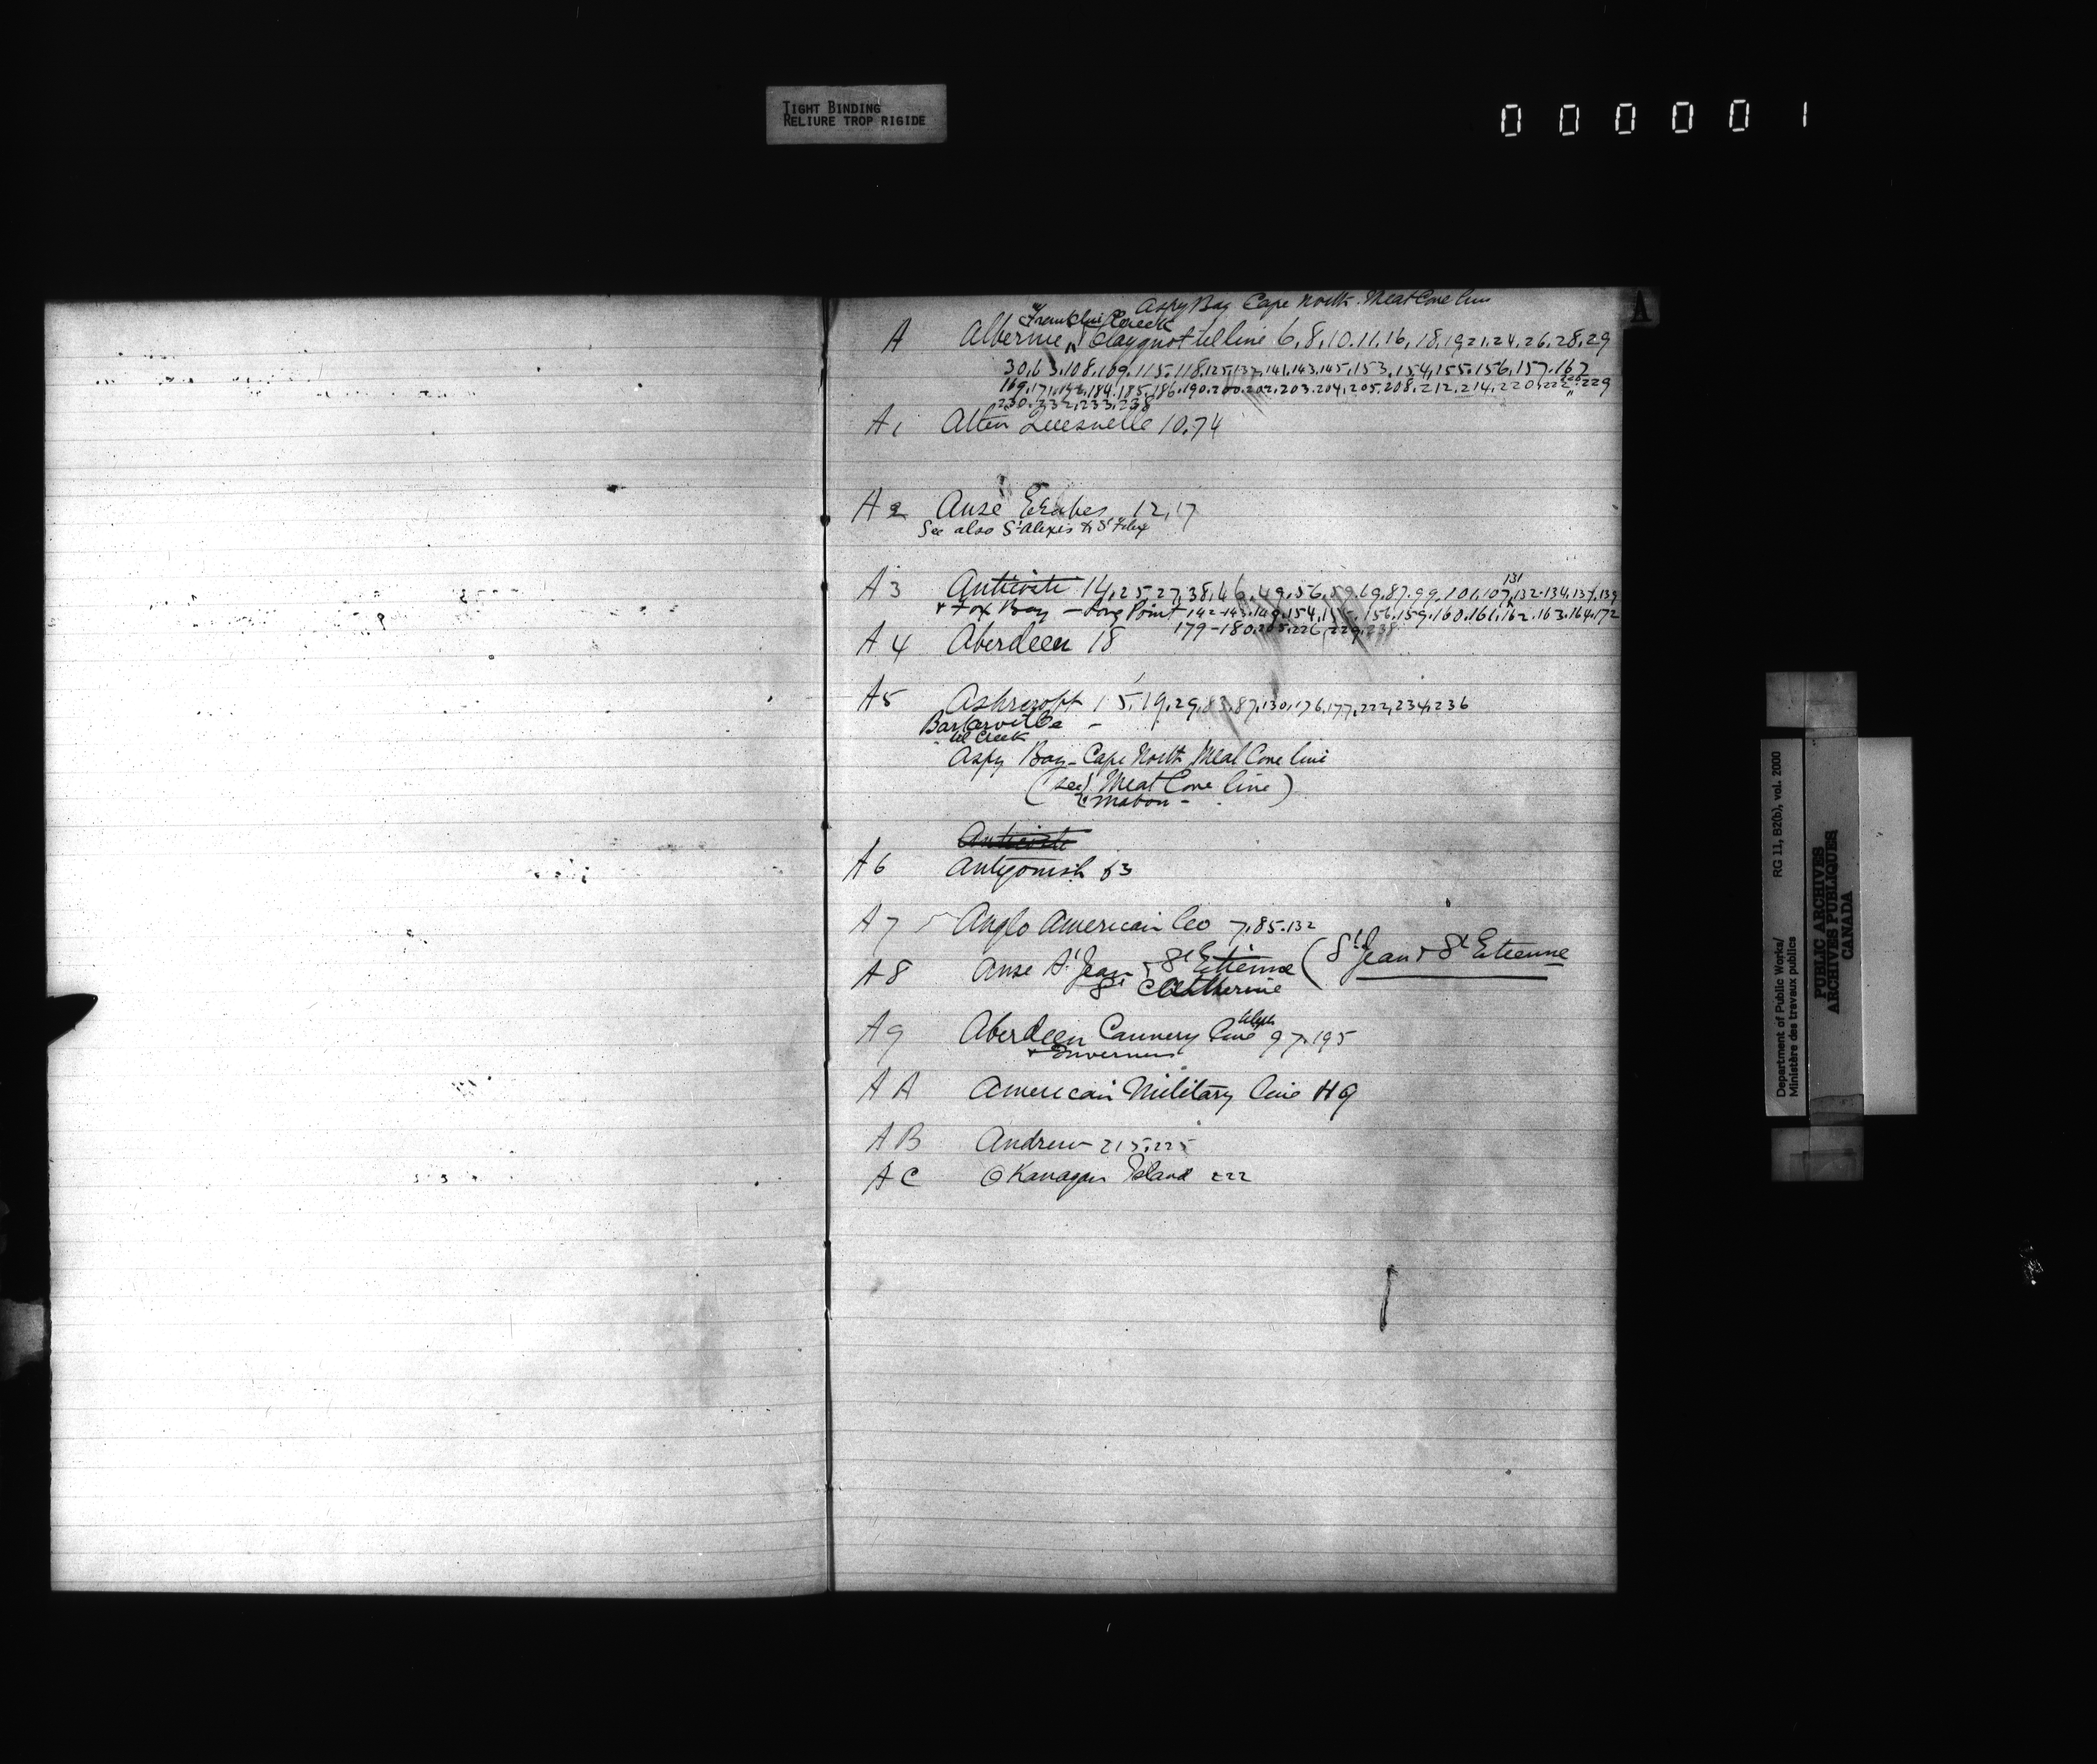 TIGHT BINDING
RELIURE TROP RIGIDE
000001
A
Aspy Bay Cape North. Meat Cove line
Franklin Creek
A Albernie Clayquot tel line 6,8,10.11.16,18,19,21,24,26,28,29
30,63,108,109,115,118,125,132,141,143,145,153,154,155,156,157,167
169,171,172,184,185,186,190,200,202,203,204,205,208,212,214,220,222,229
230,232,233,238
A1 Atlin Quesnelle 10,74
A2 Anse Erables 12,17
See also St Alexis & St Felix
131
A3 Anticosti 14,25,27,38,46,49,56,59,69,87,99,101,107,132-134,137,139
& Fox Bay - Long Point 142-143,149,154,155,156,159,160,161,162,163,164,172
179-180,205,226,229,238
A4 Aberdeen 18
A5 Ashcroft 15,19,29,83,87,130,176,177,222,234,236
Barkerville -
Creek
Aspy Bay - Cape North Meat Cove line
(see Meat Cove line)
& Mabou -
Anticosti
A6 Antigonish 63
A7 Anglo American Co 7,85,132
A8 Anse St Jean & St Etienne (St Jean & St Etienne
Catherine
A9 Aberdeen Cannery teleph line 97,195
& Inverness
AA American Military line HQ
AB Andrew 215,225
AC Okanagan Island 222
Department of Public Works/ RG 11, B2(b), vol. 2000
Ministère des travaux publics
PUBLIC ARCHIVES
ARCHIVES PUBLIQUES
CANADA